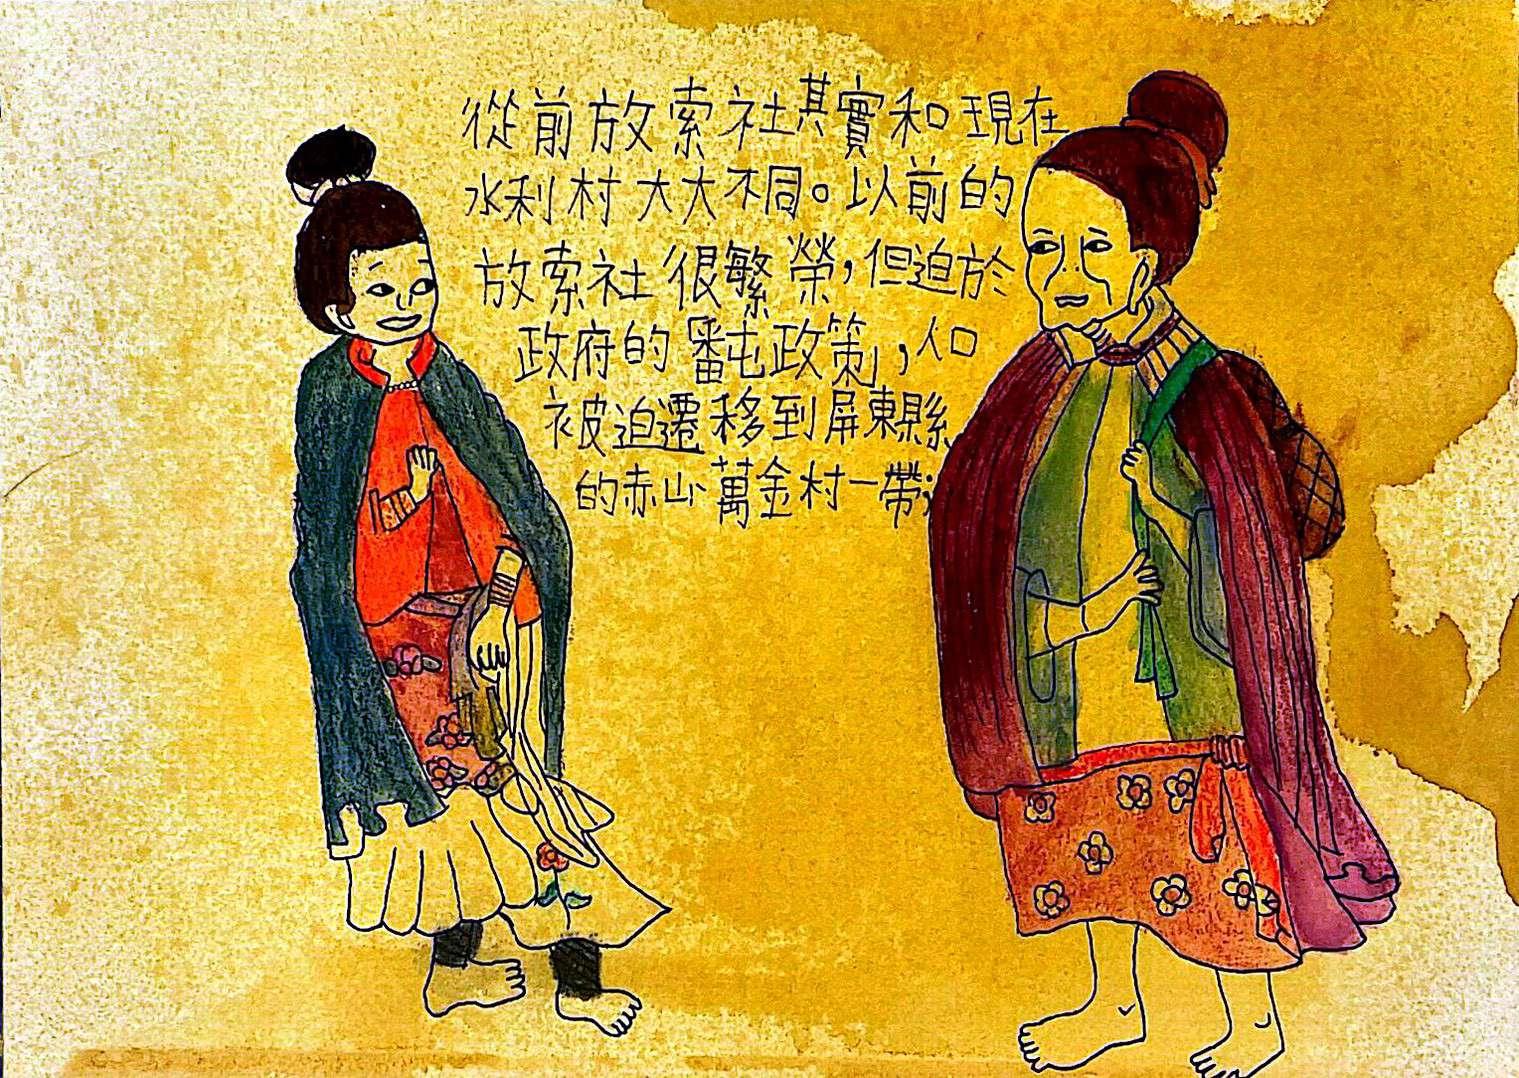 從前放索社其實和現在
水利村大大不同。以前的
放索社很繁榮，但迫於
政府的番屯政策，人口
被迫遷移到屏東縣
的赤山萬金村一帶，